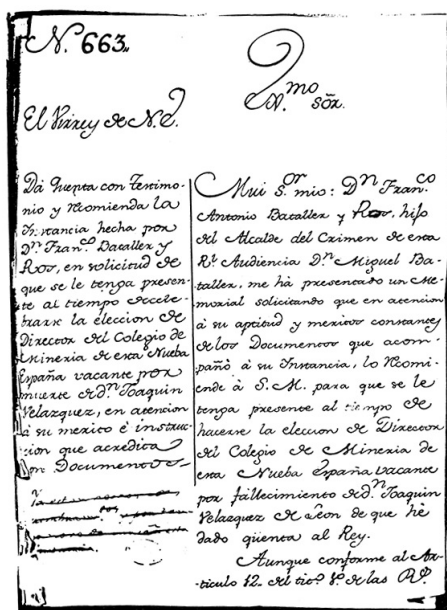 N.º 663.
Yl.mo Sõr.
El Virrey de N.E.
Dá Quenta con Testimo-
nio y recomienda la
Instancia hecha por
D.n Fran.co Bataller y
Ros, en solicitud de
que se le tenga presen-
te al tiempo de cele-
brarse la eleccion de
Director del Colegio de
Mineria de esta Nueba
España vacante por
muerte de d.n Joaquin
Velazquez, en atencion
á su merito é instruc-
cion que acredita
con Documentos
Mui S.or mio: D.n Fran.co
Antonio Bataller y Ros, hijo
del Alcalde del Crimen de esta
R.l Audiencia D.n Miguel Ba-
taller, me há presentado un Me-
morial solicitando que en atencion
á su aptitud y meritos constantes
de los Documentos que acom-
pañó á su Instancia, lo recomi-
ende á S. M. para que se le
tenga presente al tiempo de
hacerse la eleccion de Director
del Colegio de Mineria de
esta Nueba España vacante
por fallecimiento de d.n Joaquin
Velazquez de Leon de que hé
dado quenta al Rey.
Aunque conforme al Ar-
ticulo 12. del tit.o 1.o de las R.s